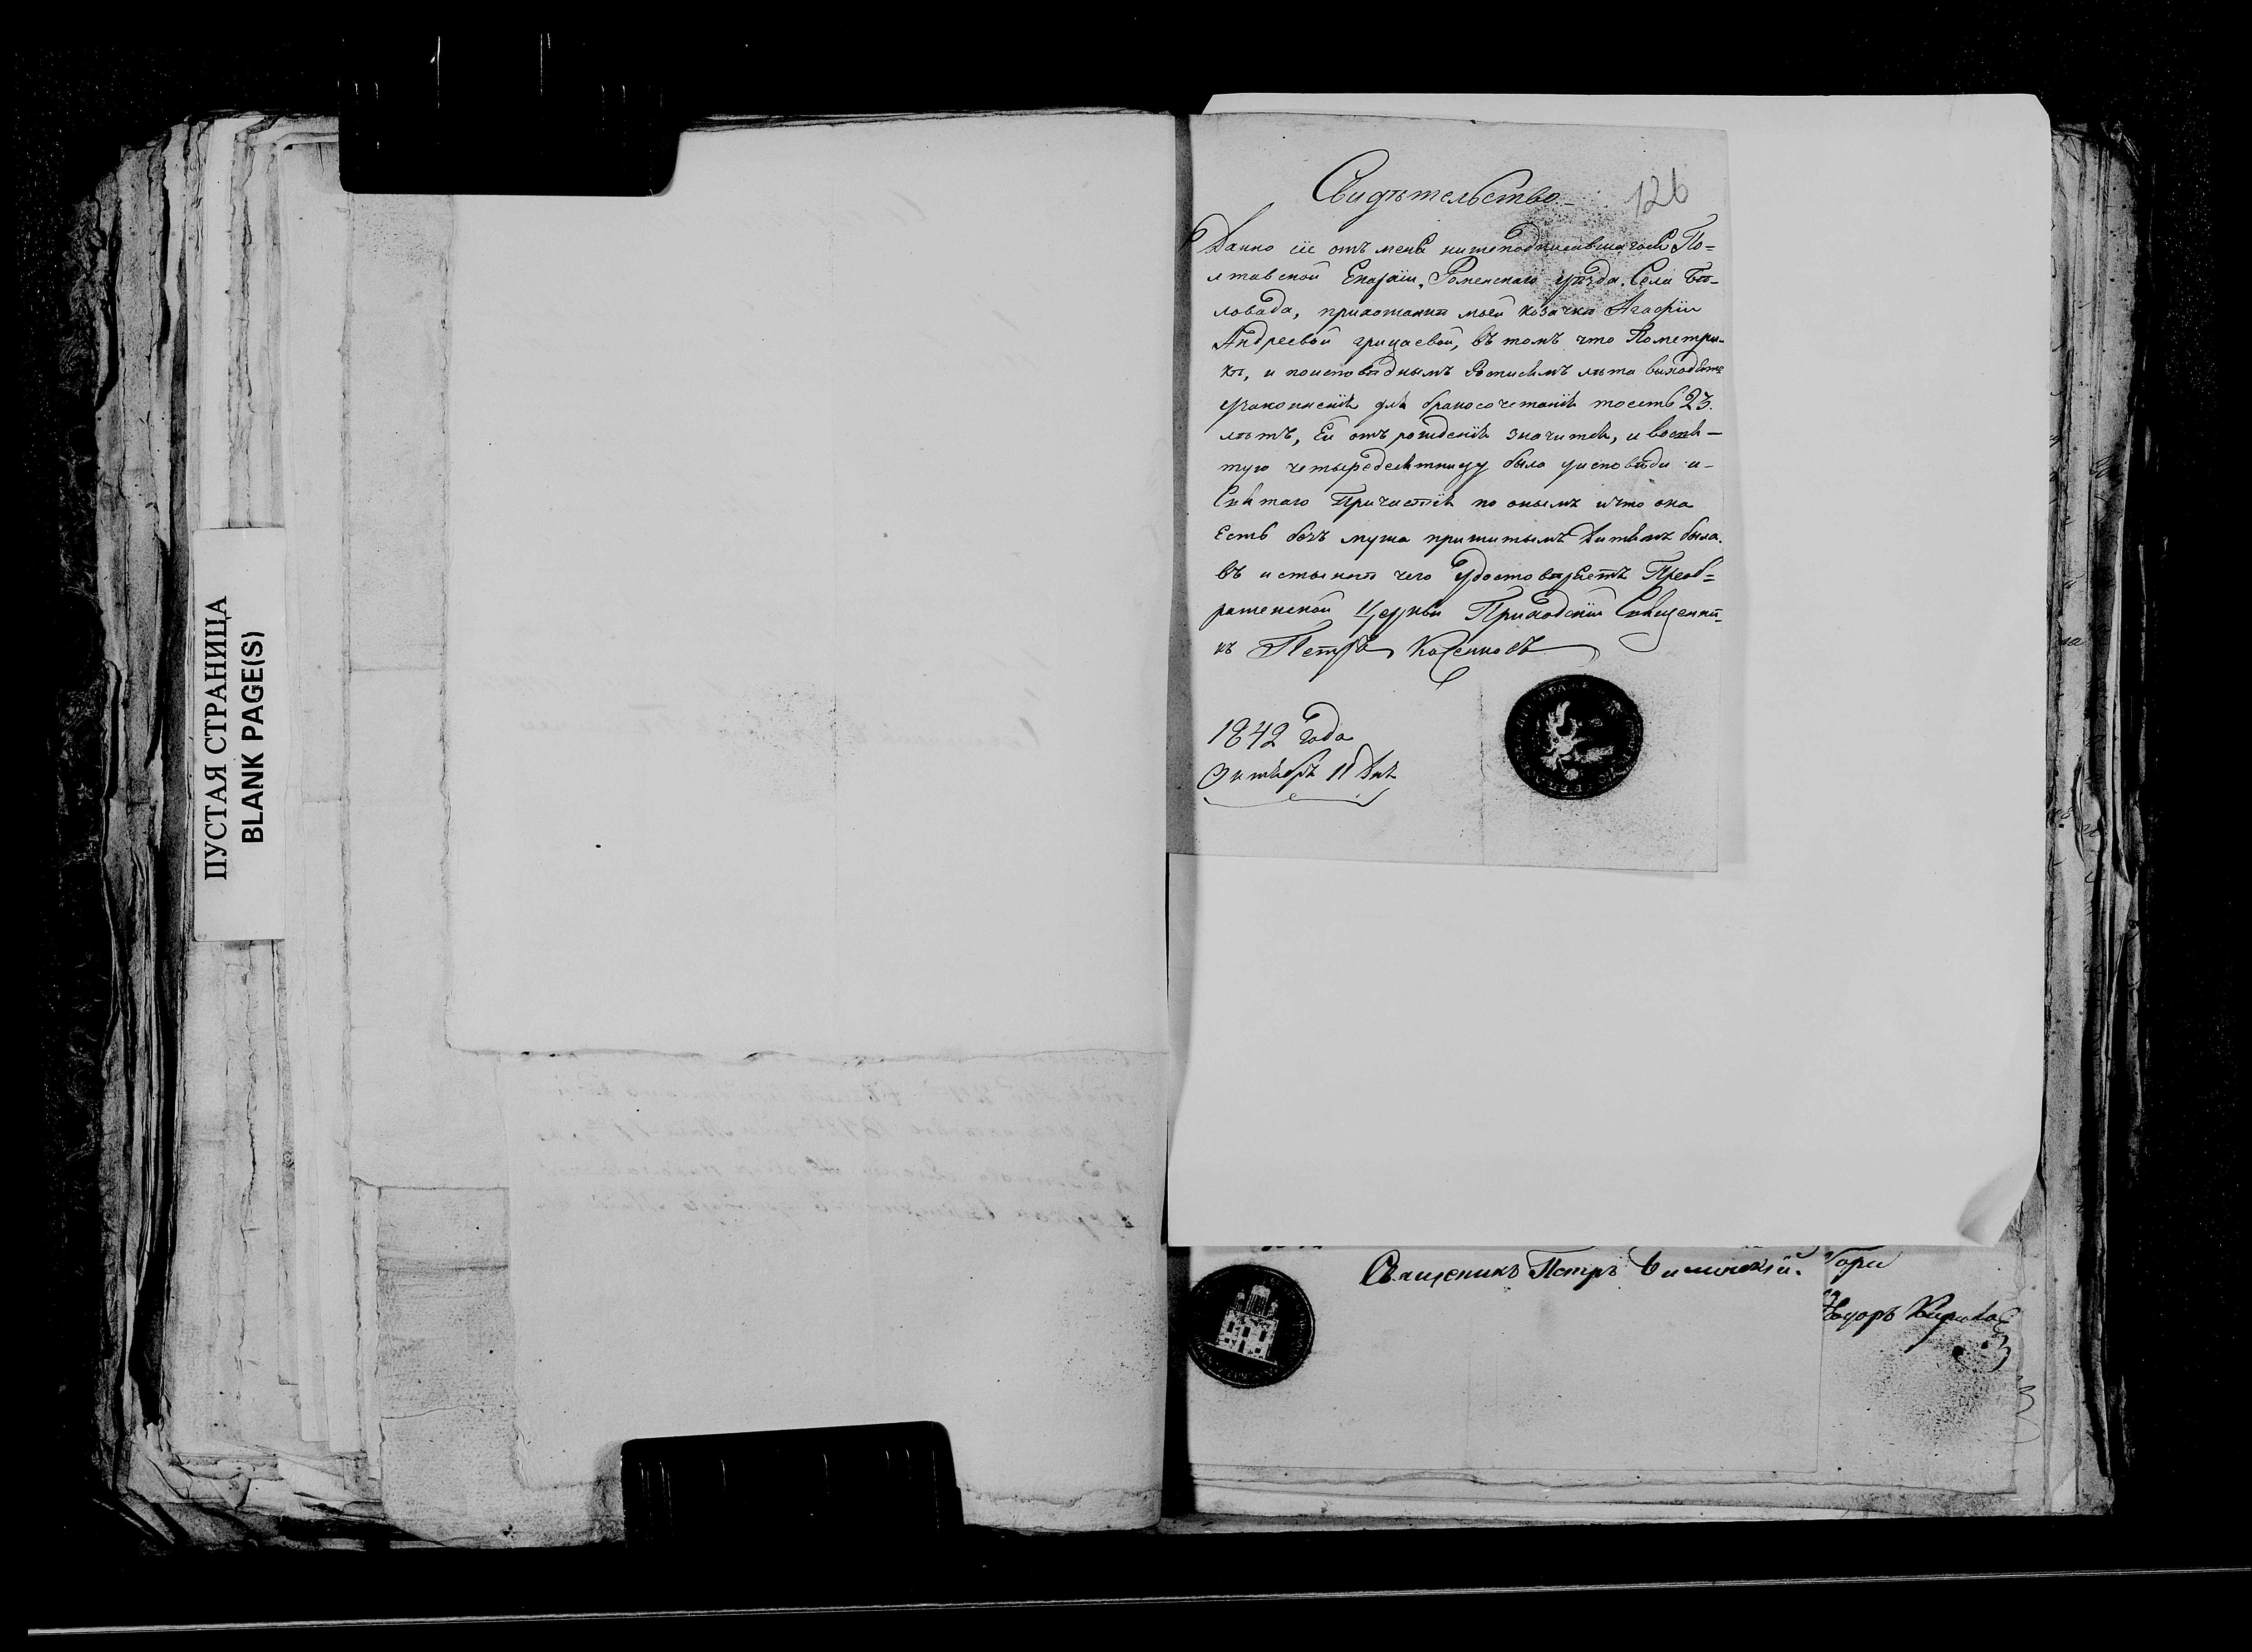 ПУСТАЯ СТРАНИЦА
BLANK PAGE(S)
126
Свидѣтельство
Данно сіе отъ меня нижеподписавшагося По=
лтавской Епархіи, Роменскаго уѣзда, Села Бѣ-
ловода, прихожанкѣ моей козачкѣ Агафіи
Андреевой Грицаевой, въ томъ что Пометри-
кѣ, и поисповѣднымъ Росписямъ лѣта виходятъ
узаконенія для бракосочетанія тоесть 23.
лѣтъ, Ей отъ рожденія значится, и восвя-
тую четыредесятницу была уисповѣди и-
Святаго Причастія по онымъ ичто она
Есть безъ мужа прижитымъ Дитямъ была.
въ истынѣ чего удостовѣряетъ Преоб=
раженской Церкви Приходскій Священни-
къ Петръ
1842 года
Октября 11 Дня
Священикъ Петръ